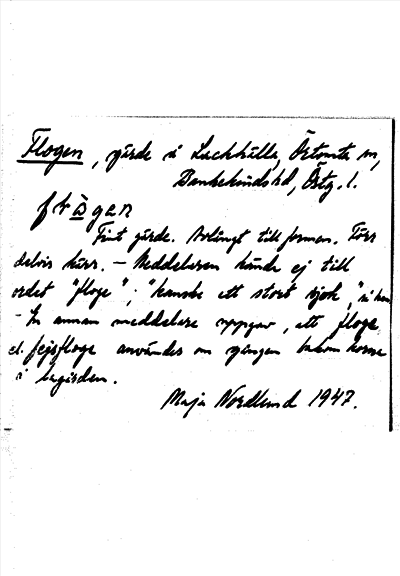 Flogen, gärde i Lackkulla, Östomta sn,
Bankekinds hd, Östg. l.
fɫògen
Fint gärde. Avlångt till formen. Förr
delvis kärr. – Meddelaren kände ej till
ordet "floge"; "kanske ett stort sjok,"
– En annan meddelare uppgav, att floge
el. fejsfloge användes om gången bakom korna
i lagården.
Maja Nordlund 1947.